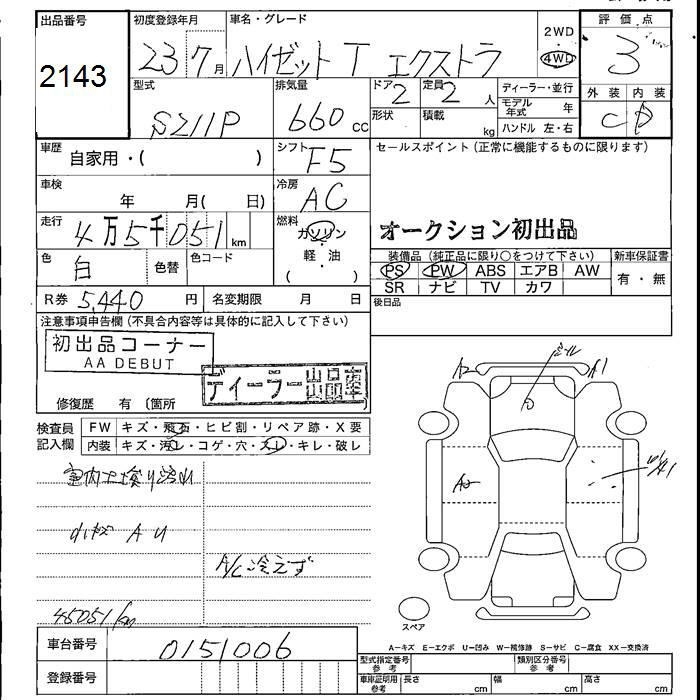 出品番号 初度登録年月 車名・グレード 2WD 評価点
2143 23 7月 ハイゼットT エクストラ 4WD 3
型式 排気量 ドア 2 定員 2人 ディーラー・並行 外装 内装
S211P 660cc 形状 積載 kg モデル年式 年 C D
ハンドル 左・右
車歴 自家用・( ) シフト F5 セールスポイント(正常に機能するものに限ります)
車検 年 月( 日) 冷房 AC
走行 4万5千051km 燃料 ガソリン オークション初出品
軽油
( )
色 白 色替 色コード 装備品(純正品に限り〇をつけて下さい) 新車保証書
PS PW ABS エアB AW 有・無
SR ナビ TV カワ
R券 5,440円 名変期限 月 日 後日品
注意事項申告欄(不具合内容等は具体的に記入して下さい)
初出品コーナー
AA DEBUT
ディーラー出品車
修復歴 有〔箇所
検査員 FW キズ・飛石・ヒビ割・リペア跡・X要
記入欄 内装 キズ・汚レ・コゲ・穴・スレ・キレ・破レ
A2 A1
A2
小キズ A U
A/C冷えず
45051km
スペア
A−キズ E−エクボ U−凹み W−補修跡 S−サビ C−腐食 XX−交換済
車台番号 0151006
型式指定番号 参考 類別区分番号 参考
登録番号 車庫証明用 参考 長さ cm 幅 cm 高さ cm